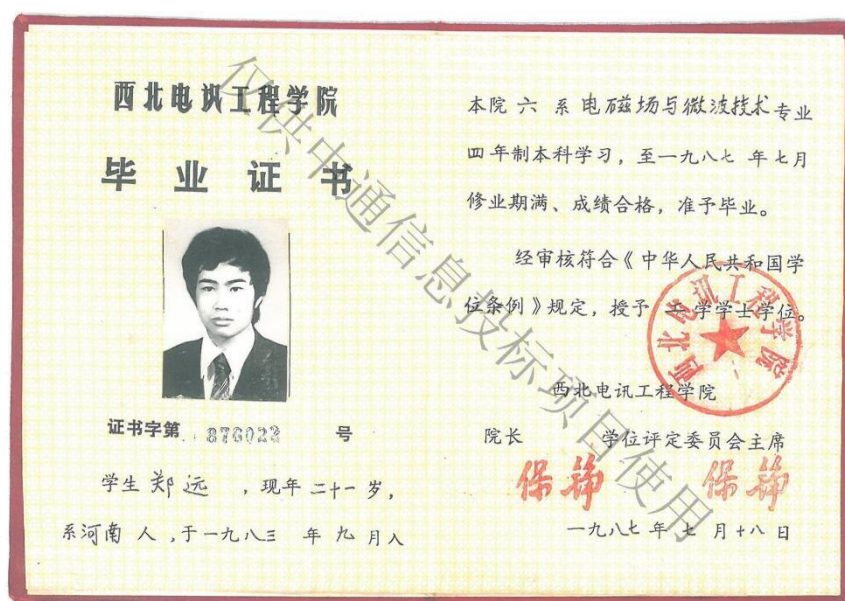 西北电讯工程学院
毕业证书
证书字第 876023 号
学生 郑远 ,现年二十一岁,
系河南人,于一九八三年九月入
本院六系电磁场与微波技术专业
四年制本科学习,至一九八七年七月
修业期满、成绩合格,准予毕业。
经审核符合《中华人民共和国学
位条例》规定,授予工学学士学位。
西北电讯工程学院
院长 学位评定委员会主席
保铮 保铮
一九八七年七月十八日
西北电讯工程学院
仅供中通信息投标项目使用